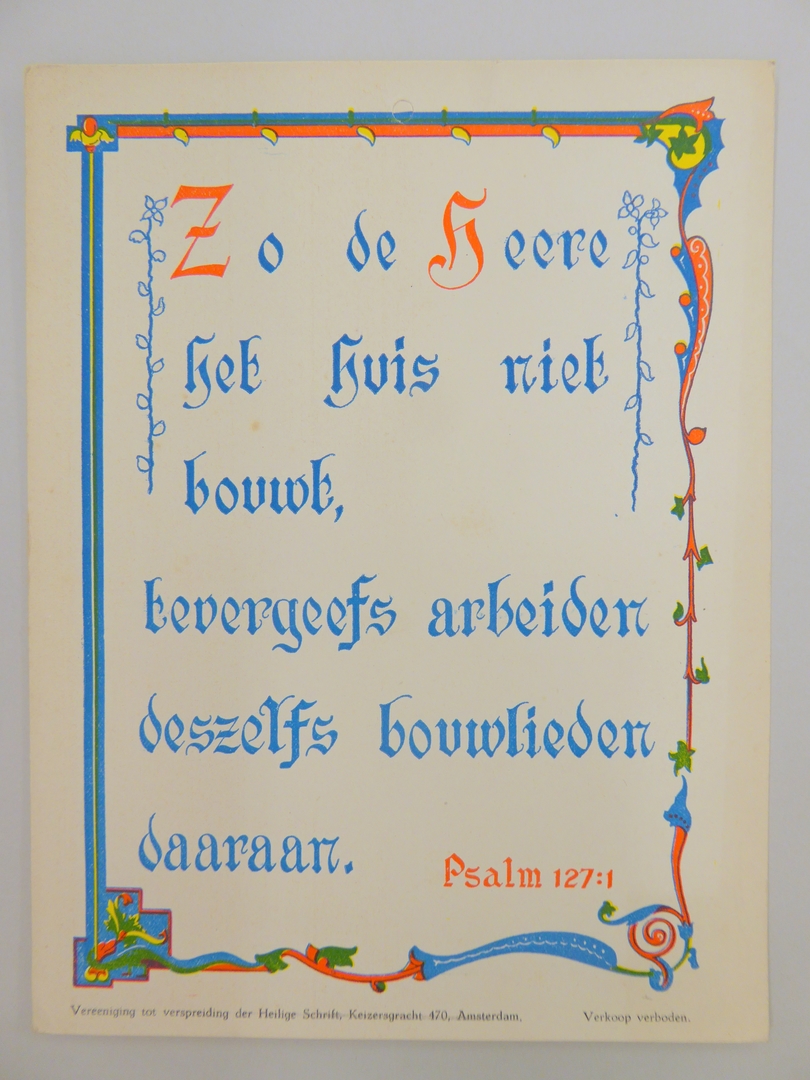 Zo de Heere
het huis niet
bouwt,
tevergeefs arbeiden
deszelfs bouwlieden
daaraan.
Psalm 127:1
Vereeniging tot verspreiding der Heilige Schrift, Keizersgracht 470, Amsterdam. Verkoop verboden.